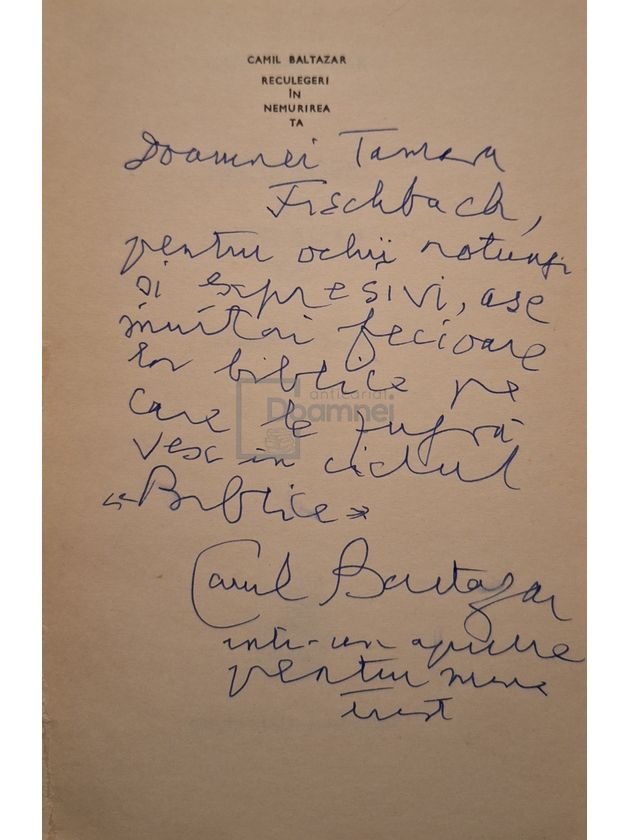 CAMIL BALTAZAR
RECULEGERI
ÎN
NEMURIREA
TA
Doamnei Tamara
Fischbach,
pentru ochii rotunzi
și expresivi, ase
muitori fecioare
lor biblice pe
care le zugră
vesc în ciclul
«Biblice»
anticariat
Doamnei
Camil Baltazar
într-un aprilie
pentru mine
trist